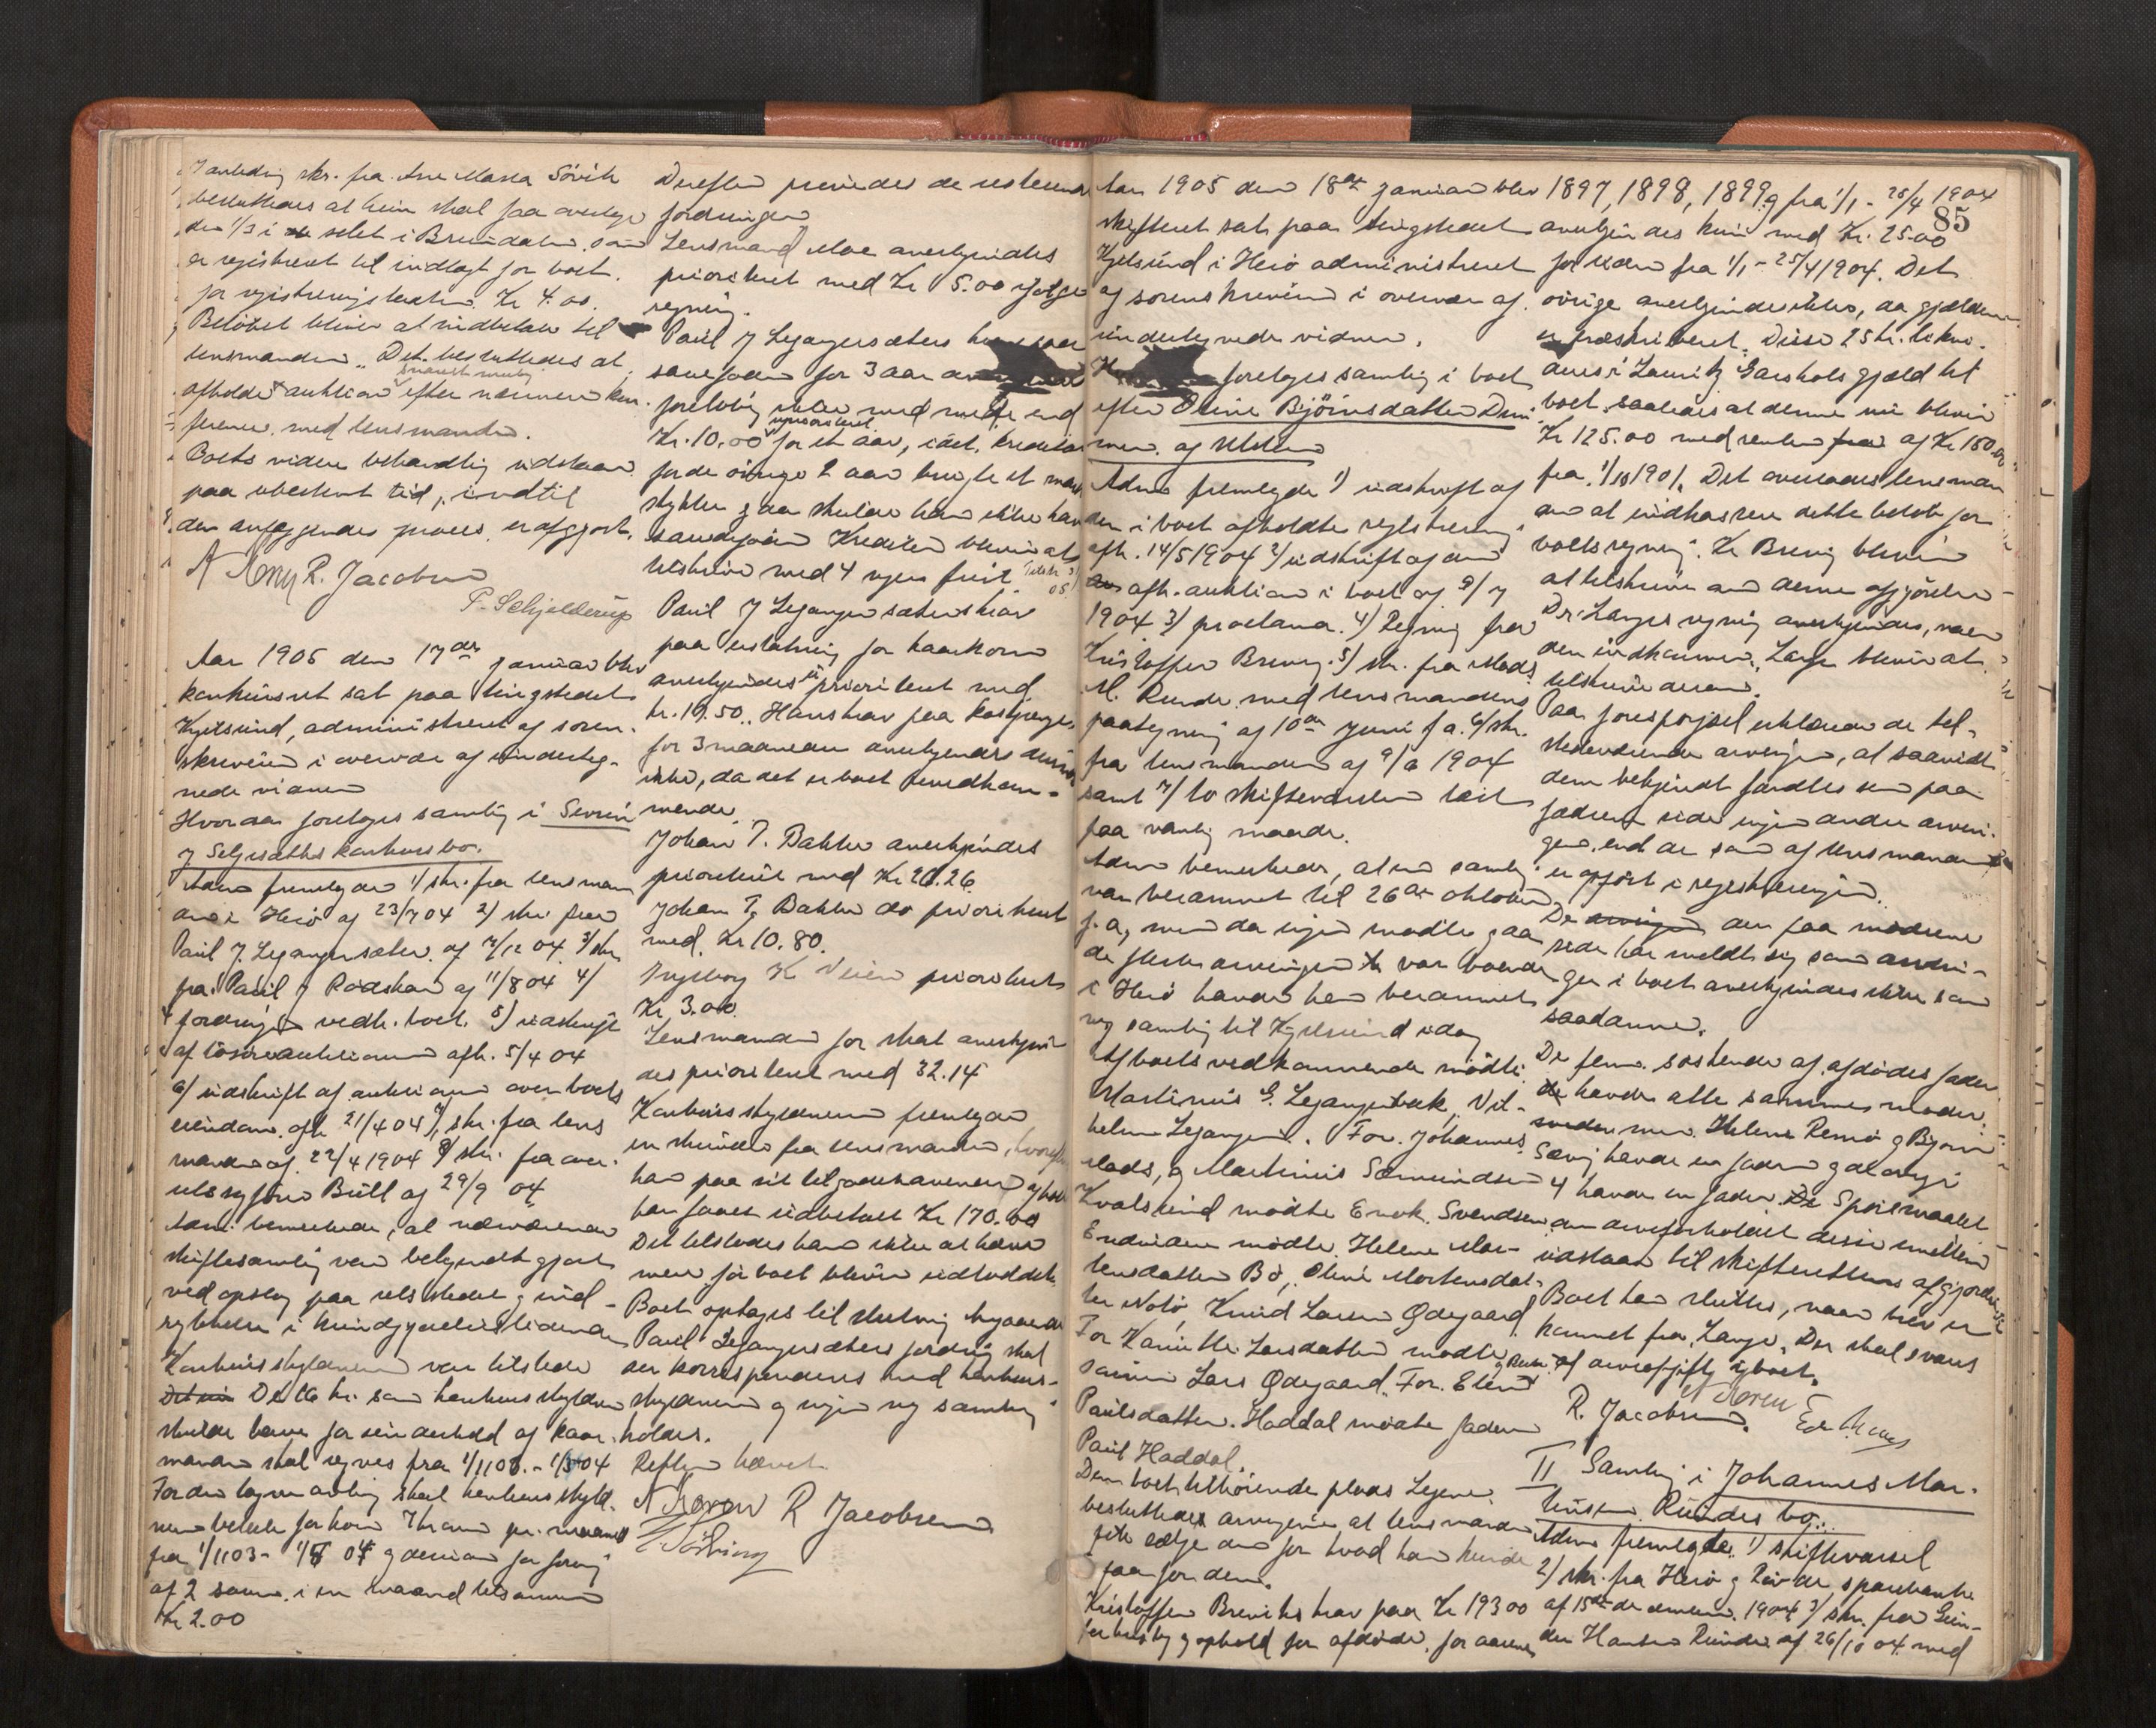 I anledning skr. fra Ane Marta Sövik
besluttedes at hun skal faa overlage
den 1/3 i selet i Breindalen, som
er registreret til indlagt for boet
for registreringstaxten Kr 4.00.
Belöbet bliver at indbetale til
lensmanden. Det besluttedes at
afholde auktion efter nærmere kon-
ference med lensmanden.
Boets videre behandling udstaar
paa ubestemt tid, indtil
den anlæggendes proces er afgjort.
R. Jacobsen
P. Schjelderup
Aar 1905 den 17de januar blev
konkursret sat paa tingstedet
Kjelsund, administreret af soren-
skriveren i overvær af underteg-
nede vidner
Hvorda foretoges samling i Severin
J Seljesæths konkursbo.
Adm fremlagde 1/ skr. fra lensman
den i Herö af 23/7 04 2/ skr. fra
Paul J. Legangersæter af 7/12 04 3/ skr.
fra Paul J Rödskar af 11/8 04 4/
fordringer vedk. boet. 5/ udskrift
af lösöreauktionen afh. 5/4 04
6/ udskrift af auktionen over boets
eiendom afh 21/4 04 7/ skr. fra lens
manden af 22/4 1904 8/ skr. fra over-
retssagförer Bull af 29/9 04
Adm. bemerkede, at nærværende
skiftesamling var bekjendtgjort
ved opslag paa retsstedet og ind-
rykkelse i kundgjörelsestidende
Konkursskyldneren var tilstede
De 16 kr. som konkursskyldneren
skulde have for sin anhold af kaar-
manden skal regnes fra 1/11 03 - 1/5 04
For den leguma shall konkursskyld-
neren betale for kom 7 kr am pr. maaned
fra 1/11 03 - 1/5 04 og desuden for foring
af 2 sauer i en maaned tilsammen
Kr 2.00
Derefter prövedes de resterende
fordringer
Lensmand Moe anerkjendtes
prioriteret med Kr 5.00 ifölge
regning.
Paul J Legangersæters krav paa
sauefoder for 3 aar
foreløbig ikke med mere end
Kr. 10.00 prioriteret for et aar, idet kreditor
for de övrige 2 aar brugte et mark
stykke og da skulde han ikke have
sauefoder Kreditor bliver at
tilskrive med 4 ugers frist
Paul J Legangersæters krav
paa erstatning for kaarkorn
anerkjendes prioriteret med
kr. 19.50. Hans krav paa kosipenge
for 3 maaneder anerkjendes
ikke, da det er boet uvedkom-
mende.
Johan P. Bakke anerkjendes
prioriteret med Kr 20.26.
Johan P. Bakke do prioriteret
med Kr 10.80.
Ingeborg K Veien prioriteret
Kr. 3.00.
Lensmanden for skat anerkjen-
des prioriteret med 32.14
Konkursskyldneren fremlagde
en skrivelse fra lensmanden, hvorefter
han paa sit tilgodehavende af boet
har faaet udbetalt Kr 170.00
Det tilstodes ham ikke at hæve
mere för boet bliver udloddet.
Boet optages til slutning angaaende
Paul Legangersæters fordring skal
der korresponderes med konkurs-
skyldneren og ingen ny samling
holdes.
Retten hævet
R Jacobsen
Aar 1905 den 18de januar blev
skifteret sat paa tingstedet
Kjelsund i Herö administreret
af sorenskriveren i overvær af
undertegnede vidner.
foretoges samling i boet
efter Oline Björnsdatter Dim-
men af Ulsten
Adm fremlagde 1) udskrift af
den i boet afholdte registrering
afh. 14/5 1904 2/ udskrift af den
afh. auktion i boet af 9/7
1904 3/ proclama. 4) Regning fra
Kristoffer Brevig. 5/ skr. fra Mads
M. Runde med lensmandens
paategning af 10de juni f.a. 6/ skr.
fra lensmanden af 9/6 1904
samt 7/ to skiftevarsler læst
paa vanlig maade.
Adm bemerkede, at en samling
var berammet til 26de oktober
f.a, men da ingen mødte og da
de fleste arvinger var boende
i Herö havde han berammet
ny samling til Kjelsund idag
Af boets vedkommende mödte
Martinus G. Legangerbak, Vil-
helm Leganger. For Johannes
Mads, og Martinus Sæmundsen
Kvalsund mödte Enok Svendsen
Endvidere mödte Helene Mor-
tensdatter Bö, Oline Mortensdat-
ter Notö, Knud Larsen Ødegaard
For Kamilla Larsdatter mødte
Lars Ødegaard. For Eline
Paulsdatter Haddal mødte faderen
Paul Haddal.
Den boet tilhörende plads Legene
besluttedes arvingerne at lensmanden
fik sælge den for hvad han kunde
faa for den.
Kristoffer Breviks krav paa Kr 193 00
for husly og ophold for afdöde, for aarene
1897, 1898, 1899 og fra 1/1 - 25/4 1904
85
anerkjendes kun med Kr. 25.00
for tiden fra 1/1 - 25/4 1904. Det
övrige anerkjendes ikke, da gjælden
er præskriberet. Disse 25 kr. likvi-
deres i Lauritz Garshols gjæld til
boet, saaledes at denne nu bliver
Kr 125.00 med renter af Kr 150.00
fra 1/10 1901. Det overlodes lensman
den at indkassere dette belöb for
boets regning. Kr Brevig bliver
at tilskrive om denne afgjörelse
Dr. Langes regning anerkjendes, naar
den indkommer, Lange bliver at
tilskrive derom.
Paa forespörgsel erklærede de til-
stedeværende arvinger, at saavidt
dem bekjendt fandtes der paa
fædrene side ingen andre arvin-
ger, end de som af lensmanden
er opfört i registreringen.
De der paa mödrene
side har meldt sig som arvin-
ger i boet anerkjendes ikke som
saadanne.
De fem söskende af afdödes fader
havde alle samme moder,
men Helene Remö og Björn
Sævig havde en fader og de övrige
4 havde en fader. Spörsmaalet
om arveforholdet disse imellem
udstaar til skifterettens afgjörelse
Boet kan sluttes, naar brev er
kommet fra Lange. Der skal svares
af arveafgift i boet.
R. Jacobsen
II Samling i Johannes Mar-
tinsen Rundes bo.
Adm fremlagde 1) skiftevarsel
2) skr. fra Herö og Røvde sparebank
af 15de december 1904 3/ skr. fra Gun-
der Hansen Runde af 26/10 04 med